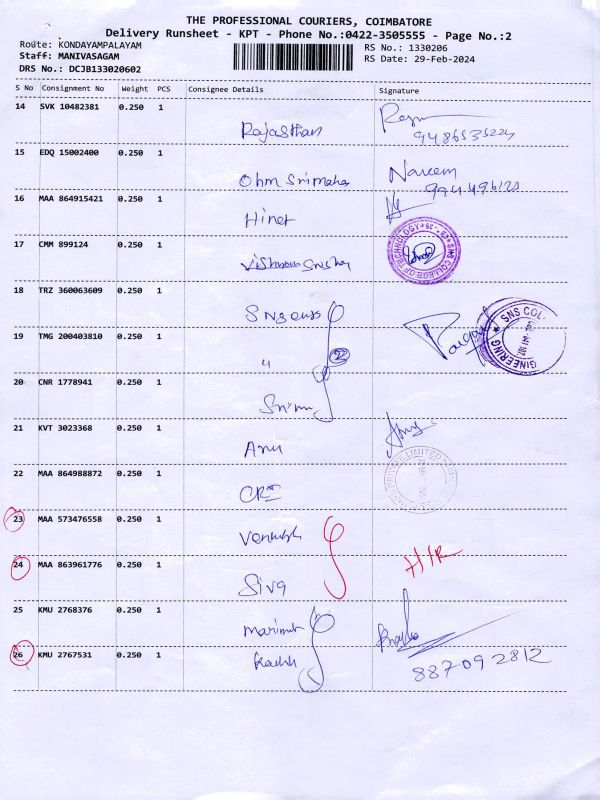 THE PROFESSIONAL COURIERS, COIMBATORE
Delivery Runsheet - KPT - Phone No.:0422-3505555 - Page No.:2
Route: KONDAYAMPALAYAM
RS No.: 1330206
Staff: MANIVASAGAM
RS Date: 29-Feb-2024
DRS No.: DCJB133020602
S No Consignment No Weight PCS Consignee Details Signature
14 SVK 10482381 0.250 1
Rajasthan
15 EDQ 15002400 0.250 1
Ohm Srimaha Nareem
16 MAA 864915421 0.250 1
Hinet
17 CMM 899124 0.250 1
SNS COLLEGE OF TECHNOLOGY
18 TRZ 360063609 0.250 1
SNS COL
GINEERING
19 TMG 200403810 0.250 1
"
2
20 CNR 1778941 0.250 1
21 KVT 3023368 0.250 1
Anu
22 MAA 864988872 0.250 1
PRIVATE LIMITED
23 MAA 573476558 0.250 1
24 MAA 863961776 0.250 1
Siva
25 KMU 2768376 0.250 1
26 KMU 2767531 0.250 1
887092812